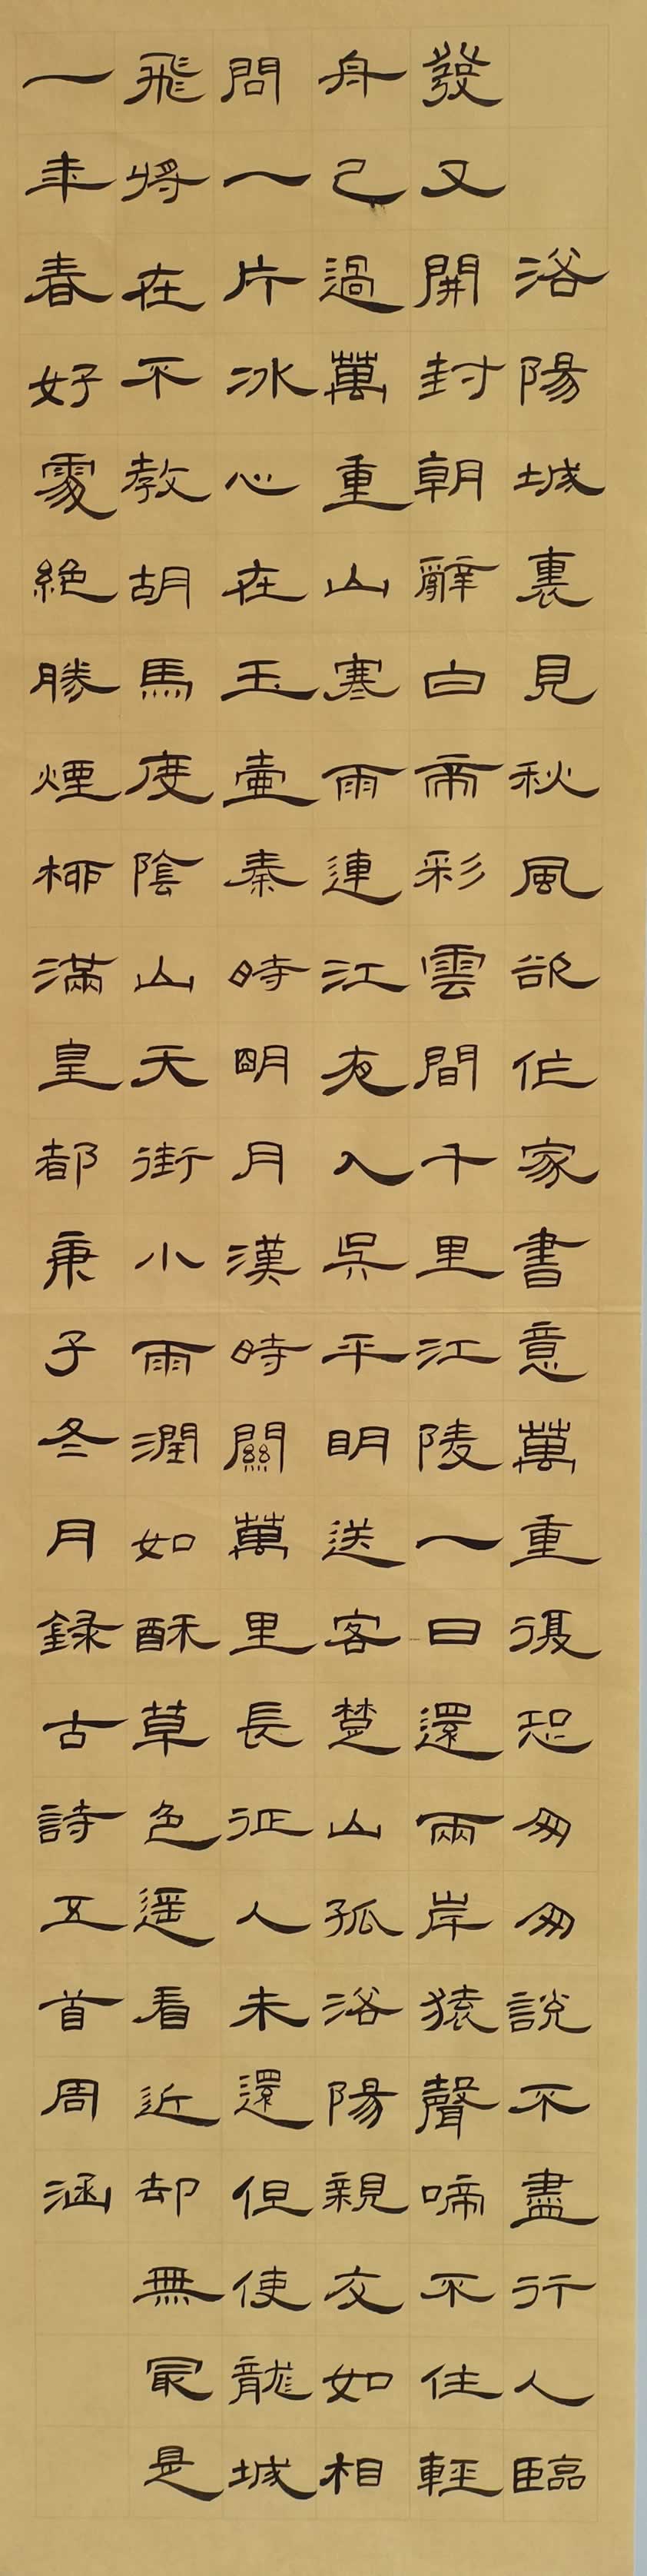 洛陽城裏見秋風欲作家書意萬重復恐匆匆說不盡行人臨
發又開封朝辭白帝彩雲間千里江陵一日還兩岸猿聲啼不住輕
舟已過萬重山寒雨連江夜入吳平明送客楚山孤洛陽親友如相
問一片冰心在玉壷秦時明月漢時關萬里長征人未還但使龍城
飛將在不教胡馬度陰山天街小雨潤如酥草色遥看近却無最是
一年春好處絶勝煙栁滿皇都庚子冬月録古詩五首周涵